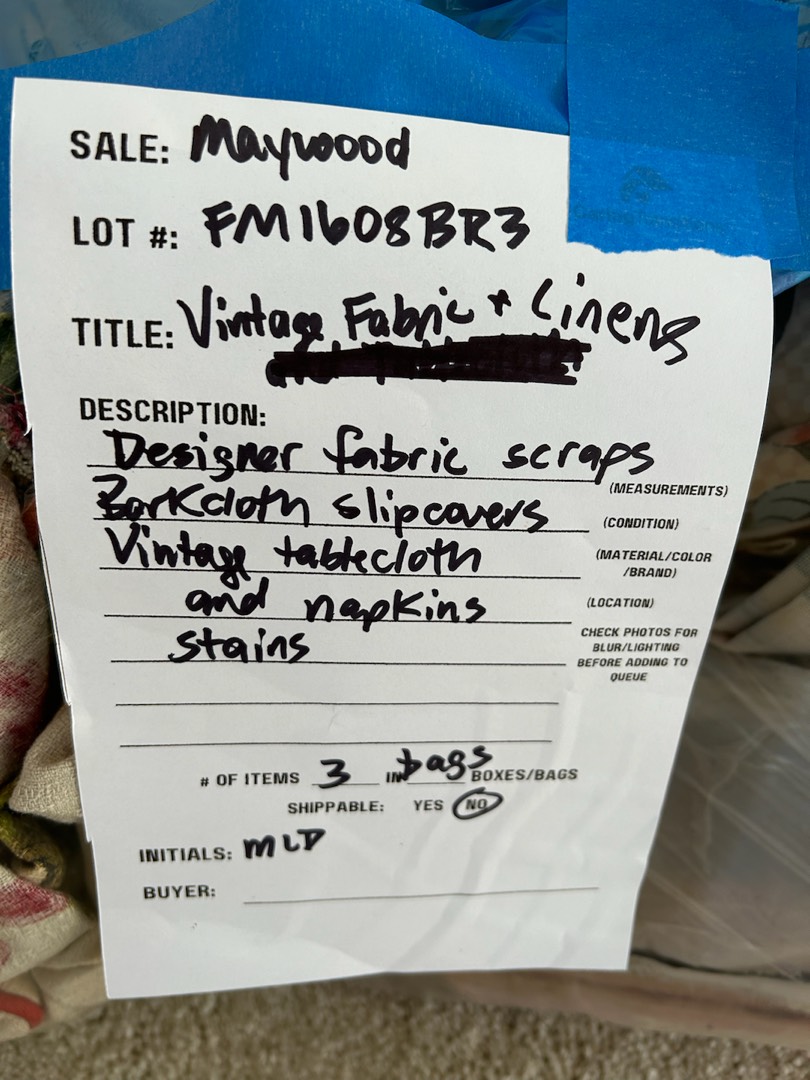 SALE: Maywood
LOT #: FM1608BR3
TITLE: Vintage Fabric + Linens
DESCRIPTION:
Designer fabric scraps
(MEASUREMENTS)
Barkcloth slipcovers
(CONDITION)
Vintage tablecloth
(MATERIAL/COLOR
/BRAND)
and napkins
(LOCATION)
stains
CHECK PHOTOS FOR
BLUR/LIGHTING
BEFORE ADDING TO
QUEUE
# OF ITEMS 3 IN bags BOXES/BAGS
SHIPPABLE: YES NO
INITIALS: MLD
BUYER: